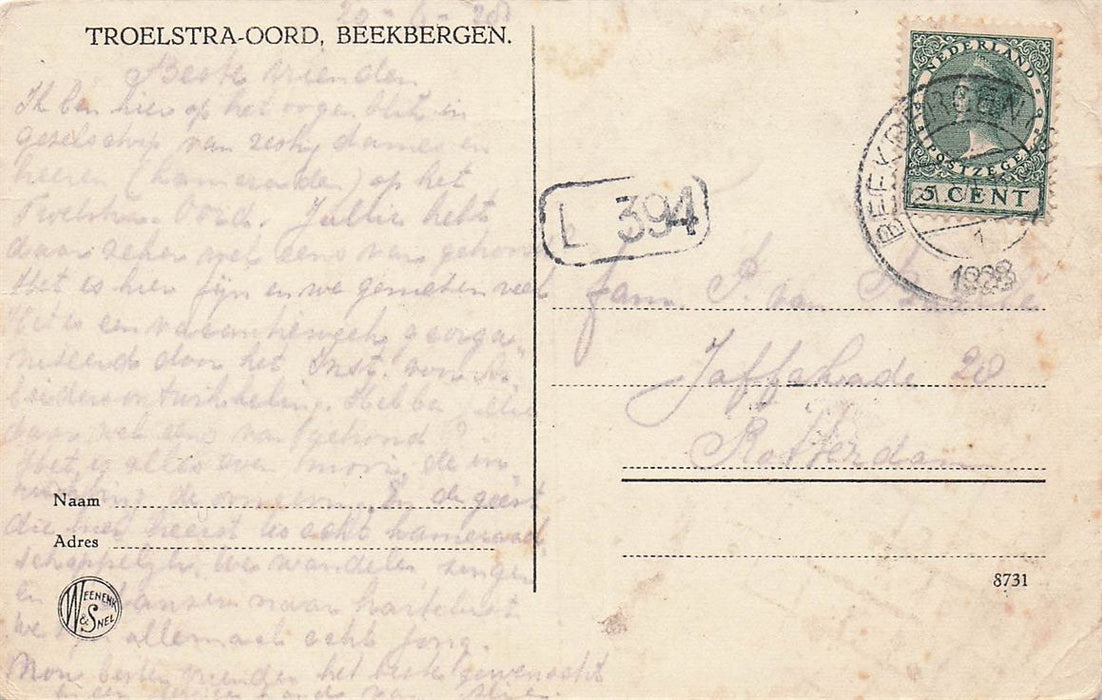 TROELSTRA-OORD, BEEKBERGEN.
Beste vrienden
Ik ben hier op het oogenblik in
gezelschap van zestig dames en
heeren (kameraden) op het
Troelstra-Oord. Jullie hebt
daar zeker wel eens van gehoord
Het is hier fijn en we genieten veel
Het is een vacantieweek georga
niseerd door het Inst. voor Ar
beidersontwikkeling. Hebben jullie
daar wel eens van gehoord?
Het is alles even mooi, de in
richting, de omgeving. En de geest
die hier heerst is echt kameraad
schappelijk. We wandelen, zingen
en dansen naar hartelust.
We allemaal echt jong.
Nou beste vrienden het beste gewenscht
en een van
Naam
Adres
WEENENK & SNEL
NEDERLAND
POSTZEGEL
5 CENT
BEEKBERGEN
1928
L 394
fam P. van
Jaffakade 20
Rotterdam
8731